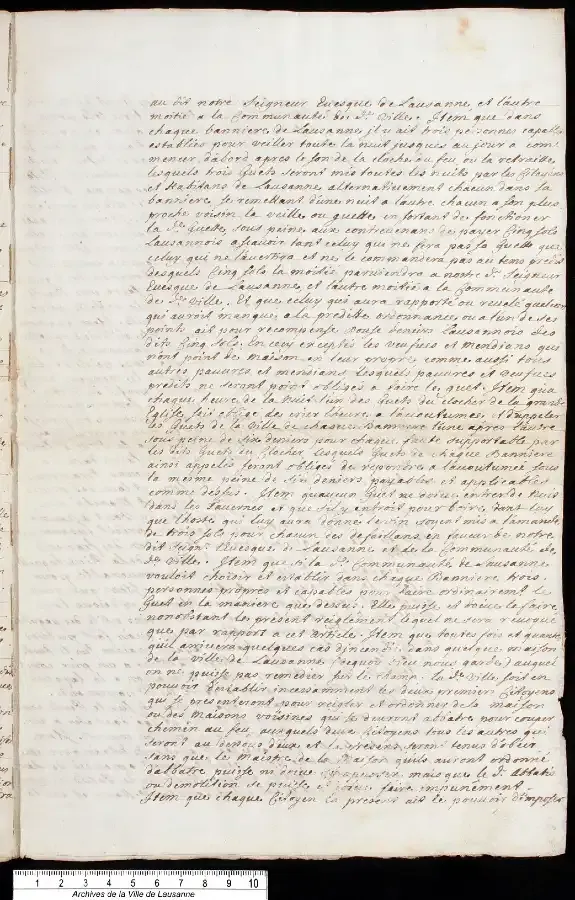 au dit notre Seigneur Evesque de Lausanne, et l'autre
moitié a la Communauté de la de. Ville. Item que dans
chaque banniere de Lausanne, il y ait trois personnes capables
establies pour veiller toute la nuit jusques au jour a com-
mencer d'abord apres le son de la cloche du feu, ou la retraitte,
lesquels trois Guets seront mis toutes les nuits par les Citoyens
et Habitans de Lausanne alternativement chacun dans sa
banniere, se remettant d'une nuit a l'autre chacun a son plus
proche voisin la veille ou guette, en sortant de fonctionner
la de. Guette, sous peine aux contrevenans de payer Cinq sols
Lausannois a sçavoir tant celuy qui ne fera pas sa Guette que
celuy qui ne l'avertira et ne le commandera pas au tems precis
desquels Cinq sols la moitié parviendra a nostre dt. Seigneur
Evesque de Lausanne, et l'autre moitié a la Communauté
de de. Ville. Et que celuy qui aura rapporté ou revelé quelcun
qui auroit manqué a la predite ordonnance ou a l'un de ses
points ait pour recompense douse deniers Lausannois des
dits Cinq sols. En cecy exceptés les veufues et mendians qui
n'ont point de maison en leur propre comme aussi tous
autres pauvres et mendians Lesquels pauvres et veufues
predits ne seront point obligés a faire le guet. Item qu'a
chaque heure de la nuit l'un des Guets du Clocher de la grande
Eglise, soit obligé de crier l'heure a l'acoutumée, et d'appeler
les Guets de la Ville de chacune Banniere l'une apres l'autre
sous peine de Six deniers pour chaque faute supportable par
les dits Guets du Clocher lesquels Guets de chaque Banniere
ainsi appelés seront obligés de repondre a l'acoutumée sous
la mesme peine de Six deniers payables et applicables
comme dessus. Item qu'aucun Guet ne doive entrer de Nuit
dans les Tavernes et que s'il y entroit pour boire, tant luy
que l'hoste qui luy aura donné le vin soyent mis a l'amande
de trois sols pour chacun des defaillans, en faveur de notre
dit Seigr. Evesque de Lausanne et de la Communauté de
de. Ville. Item que si la de. Communauté de Lausanne
vouloit choisir et establir dans chaque Banniere trois
personnes propres et capables pour faire ordinairement le
Guet en la maniere que dessus. Elle puisse et doive le faire
nonobstant le present reiglement lequel ne sera revoqué
que par rapport a cet Article. Item que toutes fois et quantes
qu'il arrivera quelques cas d'incendie dans quelque maison
de la Ville de Lausanne (ce que Dieu nous garde) auquel
on ne puisse pas remedier sur le champ. la de. Ville soit en
pouvoir d'establir incessamment les deux premiers Citoyens
qui se presenteront pour reigler et ordonner de la maison
ou des maisons voisines qui se devront abatre pour couper
chemin au feu, auxquels deux Citoyens tous les autres qui
seront au dessous d'eux et la presens seront tenus d'obeir
sans que le Maistre de la Maison qu'ils auront ordonné
d'abatre puisse ni doive s'y opposer mais que le dt. Abbatis
ou demolition se puisse et doive faire impunément
Item que chaque Citoyen la present ait le pouvoir d'imposer
1 2 3 4 5 6 7 8 9 10
Archives de la Ville de Lausanne